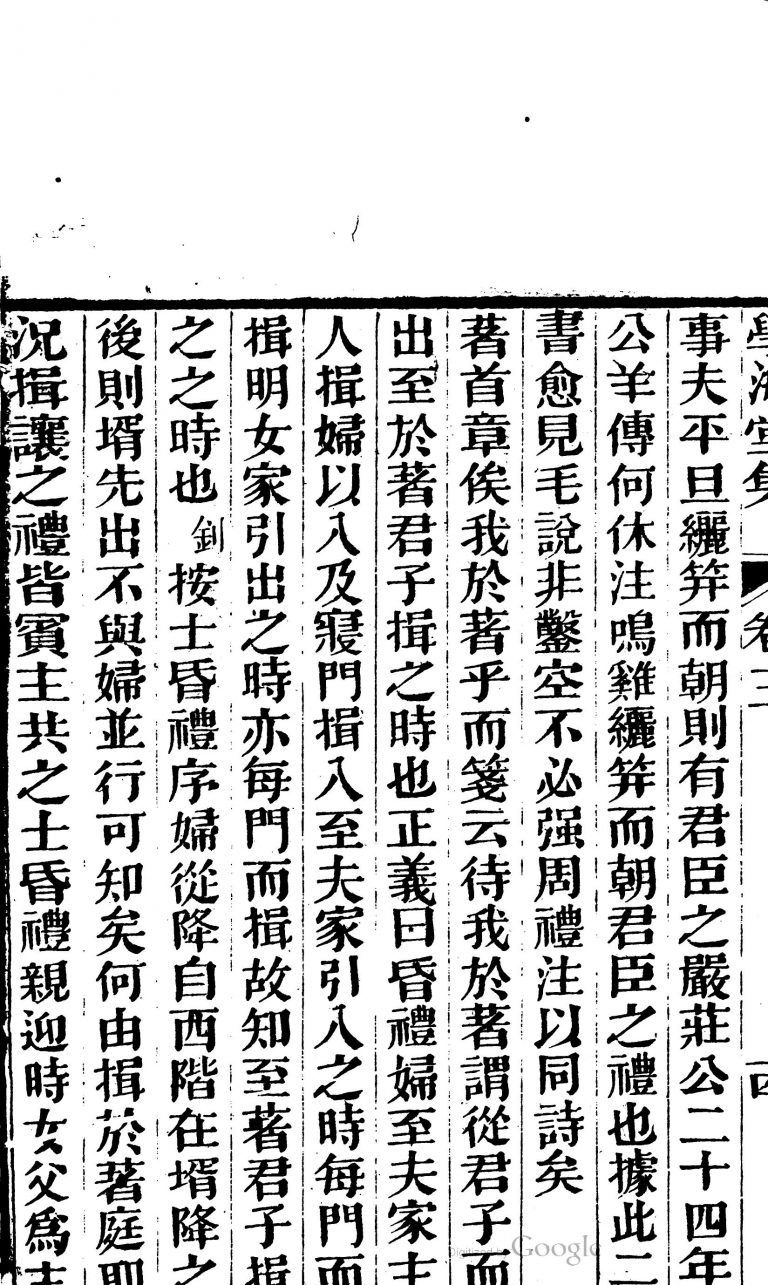 學海堂集 卷三 十四
事夫平旦纚笄而朝則有君臣之嚴莊公二十四年
公羊傳何休注鳴雞纚笄而朝君臣之禮也據此二
書愈見毛說非鑿空不必强周禮注以同詩矣
著首章俟我於著乎而箋云待我於著謂從君子而
出至於著君子揖之時也正義曰昏禮婦至夫家主
人揖婦以入及寢門揖入至夫家引入之時每門而
揖明女家引出之時亦每門而揖故知至著君子揖
之之時也 釗按士昏禮序婦從降自西階在壻降之
後則壻先出不與婦並行可知矣何由揖於著庭即
況揖讓之禮皆賓主共之士昏禮親迎時女父為主
Digitized by Google